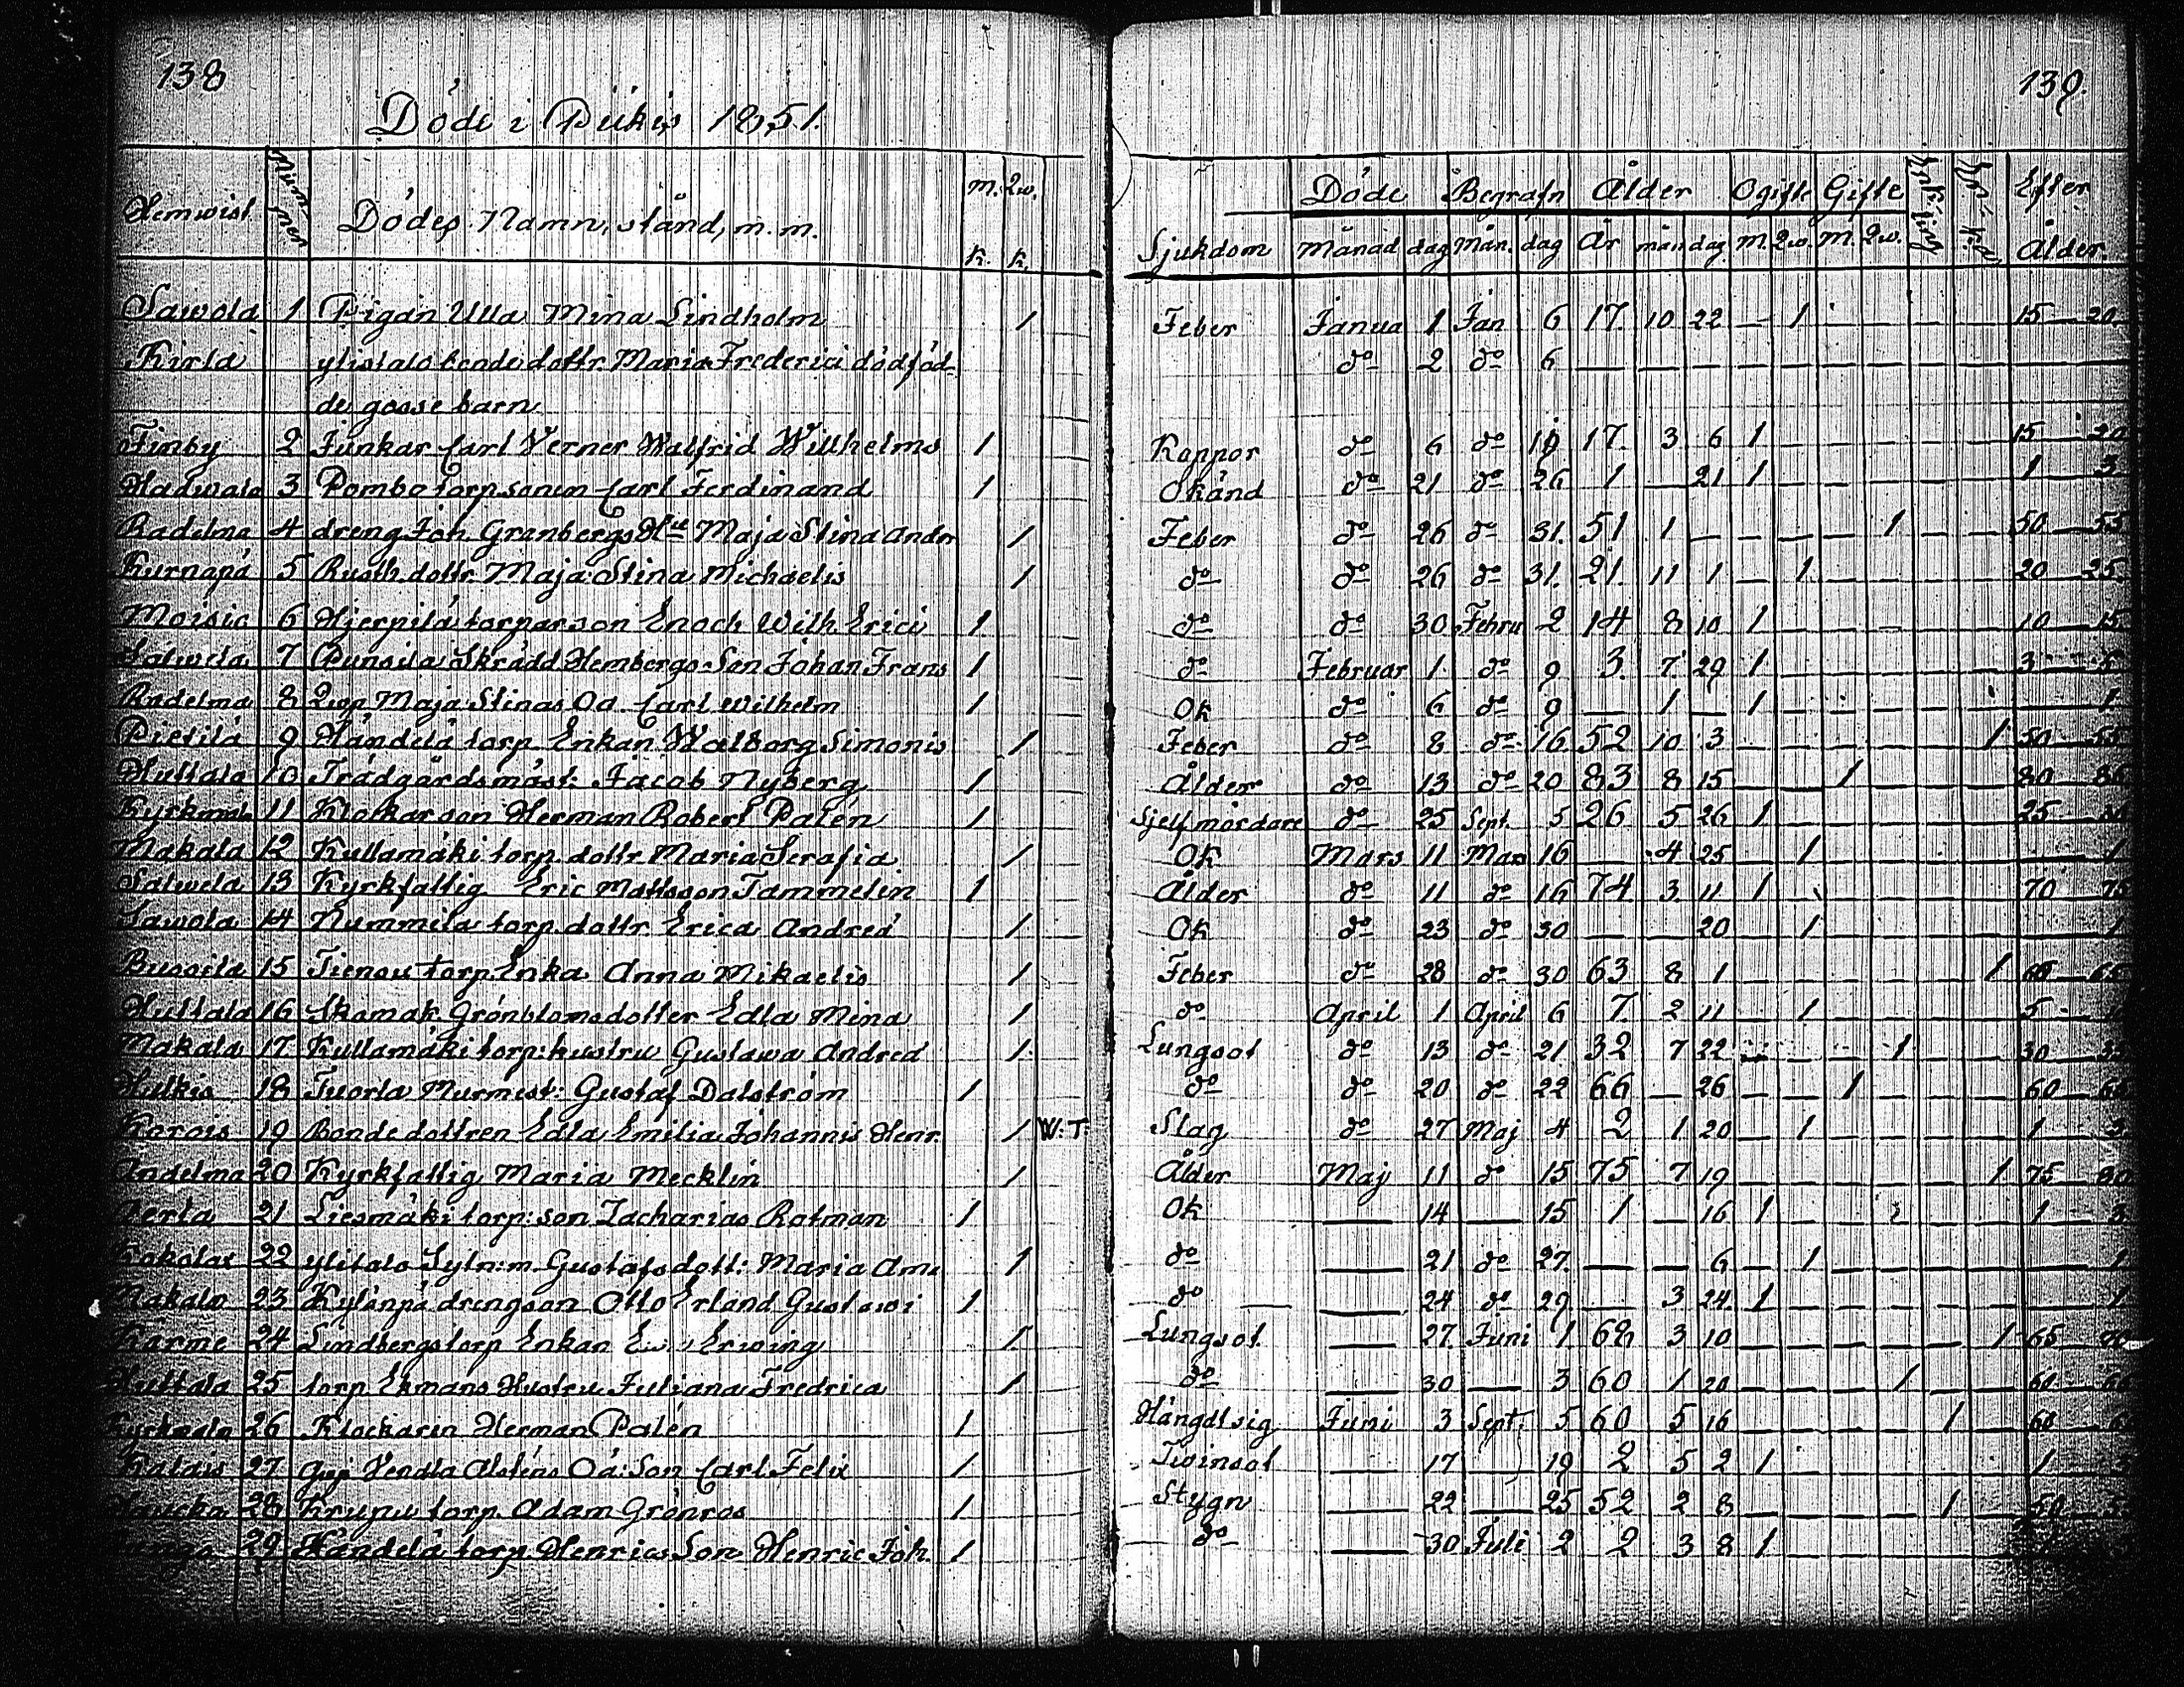 138
139.
Döde i Piikis 1851.
Hemwist Nummer Dödes Namn, stånd, m. m. m.k. Qw.k. Sjukdom Döde Månad dag Begrafn Mån. dag Ålder År mån dag Ogifte M. Qw. Gifte M. Qw. Enkling Enka Efter Ålder.
Sawola 1 Pigan Ulla Mina Lindholm 1 Feber Janua 1 Jan 6 17 10 22 — 1 — — — — 15—20
Kirla ylistalo bonde dottr. Maria Frederici dödföd- do 2 do 6 — — — — — — — — —
de gosse barn
Finby 2 Junkar Carl Verner Walfrid Willhelms 1 Koppor do 6 do 19 17 3 6 1 — — — — — 15 20
Hadwala 3 Pombo torp sonen Carl Ferdinand 1 Okänd do 21 do 26 1 — 21 1 — — — — — 1 3
Radelma 4 dreng Joh Granbergs Hu Maja Stina Andr 1 Feber do 26 do 31. 51 1 — — — — 1 — — 50—55
Kurnapä 5 Rusth. dottr. Maja Stina Michaelis 1 do do 26 do 31. 21. 11 1 — 1 — — — — 20—25.
Moisio 6 Hjerpilä torparson Enoch Wilh. Erici 1 do do 30 Febru 2 14 8 10 1 — — — — — 10—15
Satwela 7 Punsila Skrädd Hembergs Son Johan Frans 1 do Februar 1 do 9 3. 7. 29 1 — — — — — 3—5
Radelma 8 Qwp Maja Stinas Oä Carl Wilhelm 1 Ok do 6 do 9 — 1 — 1 — — — — — — 1
Pietilä 9 Händelä torp. Enkan Walborg Simonis 1 Feber do 8 do 16 52 10 3 — — — — — 1 50—55
Huttala 10 Trädgårdsmäst: Jacob Nyberg 1 Ålder do 13 do 20 83 8 15 — — 1 — — — 80—85
Kyrkmala 11 Klockarson Herman Robert Palén 1 Sjelfmördare do 25 Sept. 5 26 5 26 1 — — — — — 25—30
Makala 12 Kullamäki torp. dottr. Maria Serafia 1 Ok Mars 11 Mars 16 — 4 25 — 1 — — — — — 1
Satwela 13 Kyrkfattig Eric Mattsson Tammelin 1 Ålder do 11 do 16 74 3 11 1 — — — — — 70 75
Sawola 14 Nummila torp. dottr. Erica Andreä 1 Ok do 23 do 30 — — 20 — 1 — — — — — 1
Bussila 15 Tiensu torp. Enka Anna Mikaelis 1 Feber do 28 do 30 63 8 1 — — — — — 1 60—65
Huttala 16 Skomak. Grönblomsdotter Edla Mina 1 do April 1 April 6 7. 2 11 — 1 — — — — 5
Makala 17 Kullamäki torp: hustru Gustawa Andreä 1 Lungsot do 13 do 21 32 7 22 — — — 1 — — 30—35
Hulkis 18 Tuorla Murmest: Gustaf Dalström 1 do do 20 do 22 66 — 26 — — 1 — — — 60—65
Korois 19 Bonde dottren Edla Emilia Johannis Henr. 1 W: T: Slag do 27 Maj 4 2 1 20 — 1 — — — — 1 3
Andelma 20 Kyrkfattig Maria Mecklin 1 Ålder Maj 11 do 15 75 7 19 — — — — — 1 75 80
Perla 21 Liesmäki torp: son Zacharias Rotman 1 Ok — 14 — 15 1 — 16 1 — — — — — 1 3
22 ylitalo Sytn:m Gustafs dott: Maria Ama 1 do — 21 do 27. — — 6 — 1 — — — — — 1
Makala 23 Kylänpä drengson Otto Erland Gustawi 1 do — 24 do 29 — 3 24. 1 — — — — — — 1
Kärme 24 Lindbergs torp Enkan Erwing 1 Lungsot. — 27. Juni 1 68 3 10 — — — — — 1 65 70
Huttala 25 torp Ekmans Hustru Juliana Fredrica 1 do — 30 — 3 60 1 20 — — — 1 — — 60 65
Kyrkmala 26 Klockaren Herman Palén 1 Hängdt sig Juni 3 Sept 5 60 5 16 — — — — 1 — 60
27 Qwp Hendla Alsténs Oä: Son Carl Felix 1 Tvinsot — 17 — 19 2 5 2 1 — — — — — 1 3
28 Krupu torp. Adam Grönros 1 Stygn — 22 — 25 52 2 8 — — — — 1 — 50 5
29 Händelä torp. Henrics Son Henric Joh. 1 do — 30 Juli 2 2 3 8 1 — — — — —